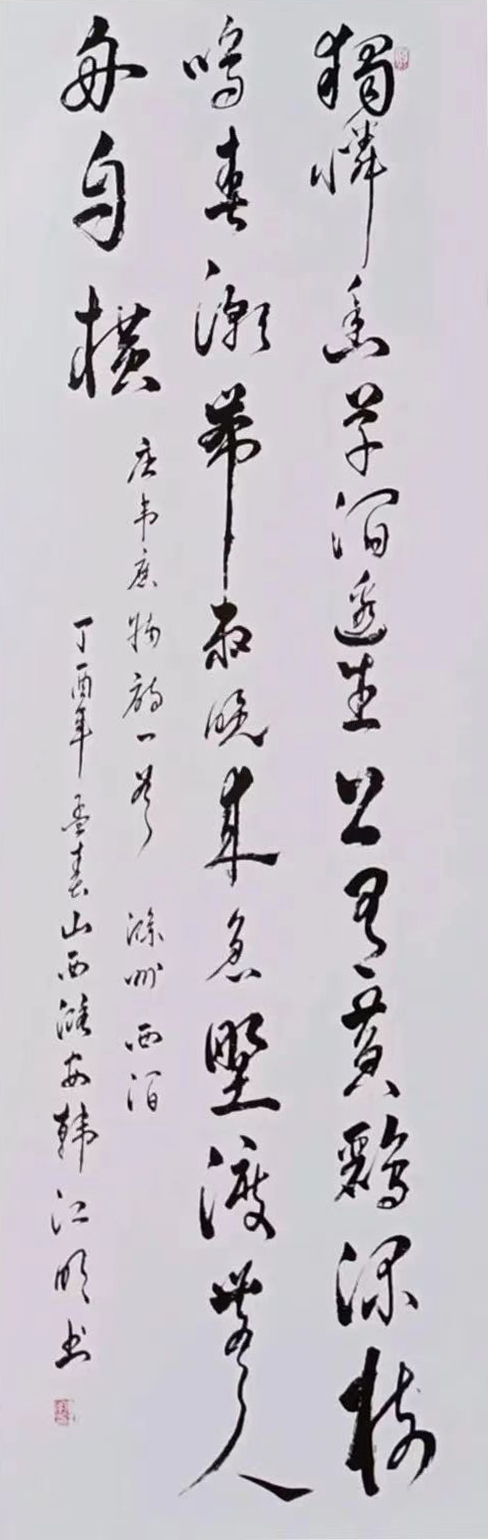 獨憐幽草澗邊生上有黃鸝深樹
鳴春潮帶雨晚來急野渡無人
舟自橫
唐韋應物詩一首 滁州西澗
丁酉年孟春山西潞安韓江明書